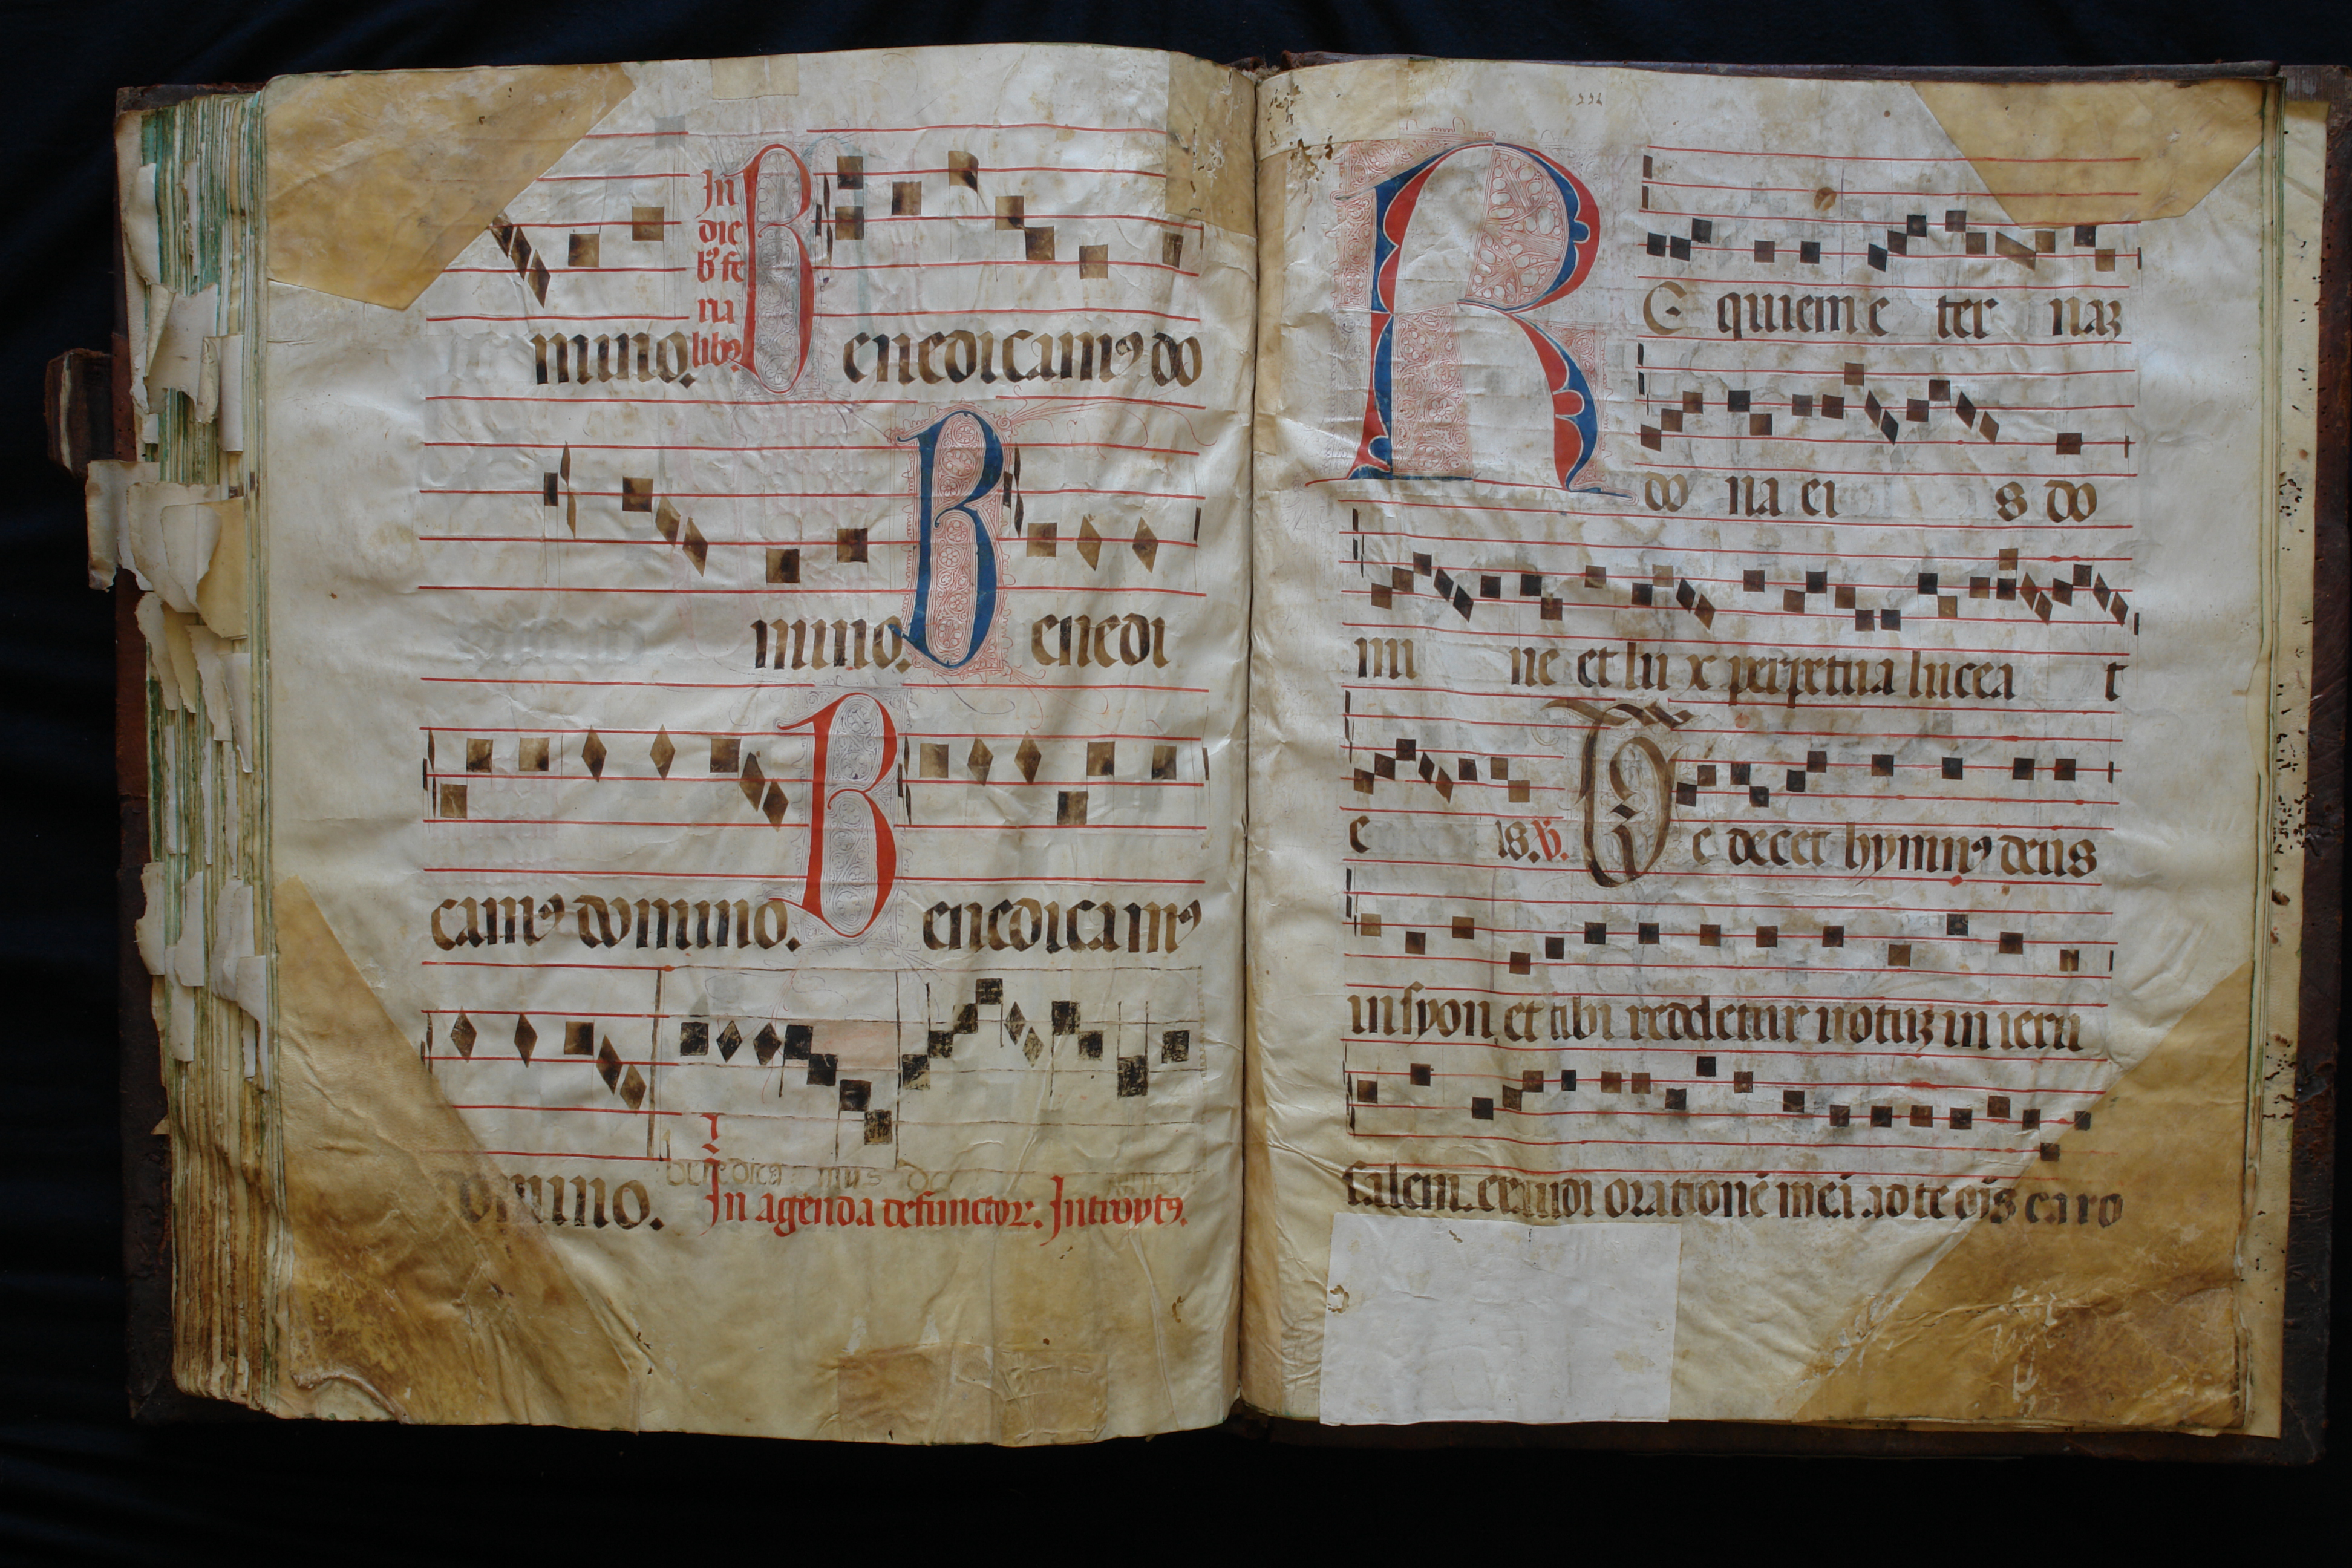 In
die
b9 fe
ria
lib9
mino. Benedicam9 do
mino. Benedi
cam9 domino. Benedicam9
benedica mus do
domino. In agenda defunctor. Introyt9.
221
RE quiem e ter naz
do na ei s do
mi ne et lu x perpetua lucea t
e is. V. Te decet hymn9 deus
in syon et tibi reddetur votuz in ieru
salem. exaudi orationē meā ad te oīs caro